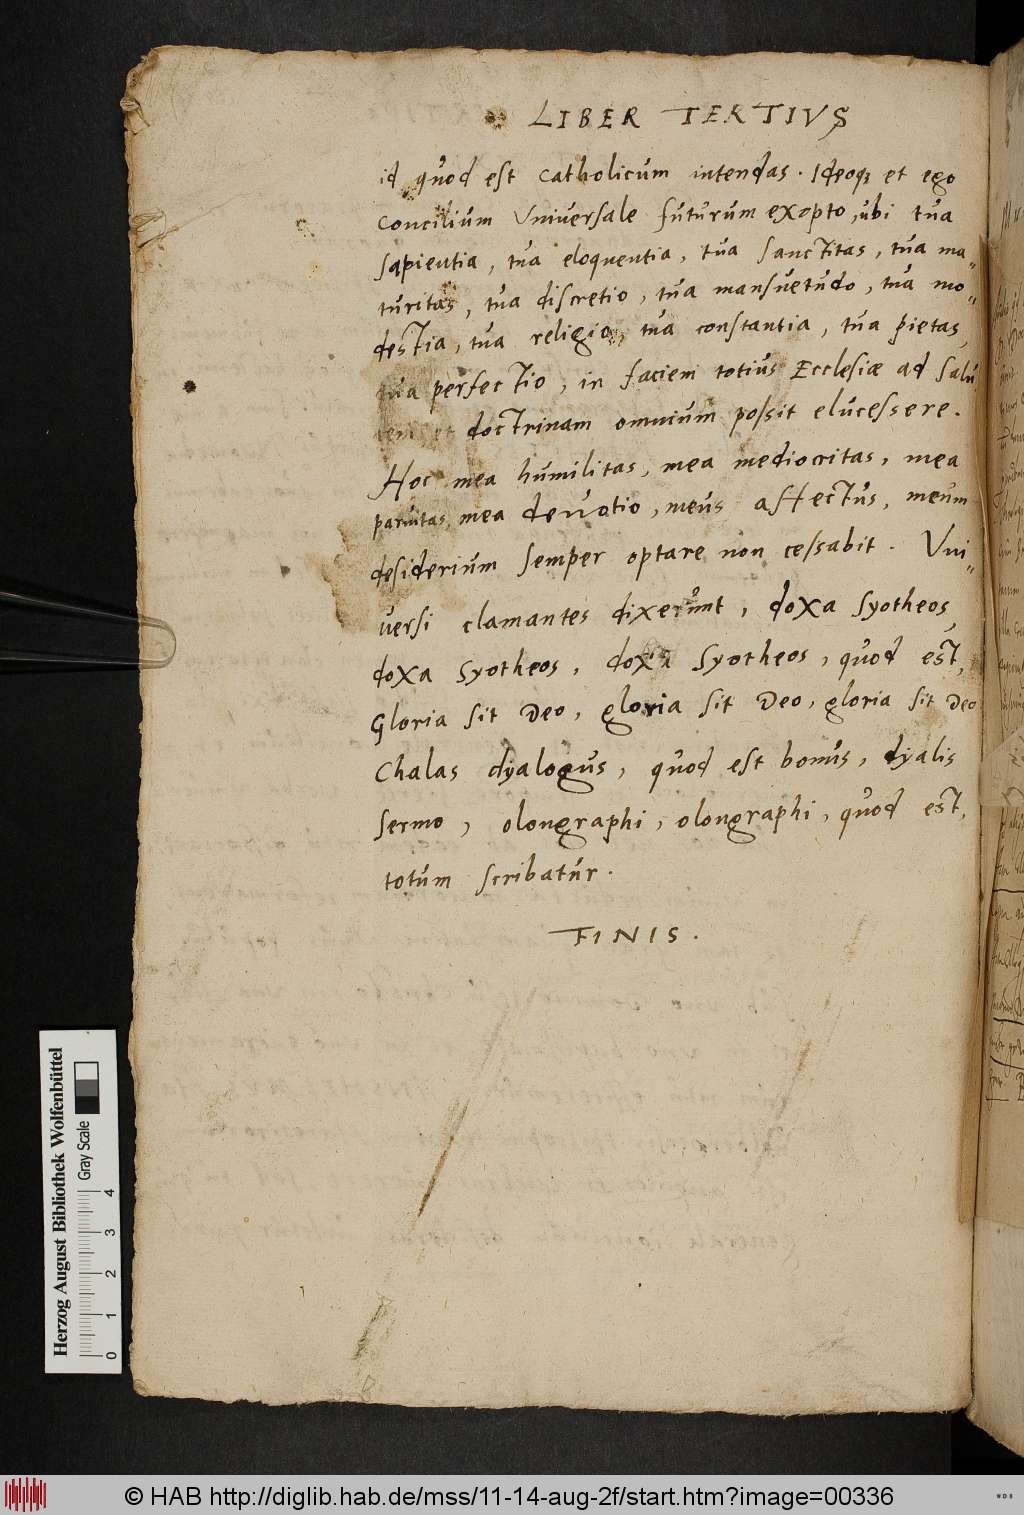 LIBER TERTIVS
id quod est catholicum intendas. Ideoq; et ego
concilium Vniuersale futurum exopto, ubi tua
sapientia, tua eloquentia, tua sanctitas, tua ma„
turitas, tua discretio, tua mansuetudo, tua mo„
destia, tua religio, tua constantia, tua pietas,
tua perfectio, in faciem totius Ecclesiæ ad salu
tem et doctrinam omnium possit elucessere.
Hoc mea humilitas, mea mediocritas, mea
paruitas, mea deuotio, meus affectus, meum
desiderium semper optare non cessabit. Vni„
uersi clamantes dixerunt, doxa syotheos,
doxa syotheos, doxa syotheos, quod est,
Gloria sit Deo, gloria sit Deo, gloria sit Deo
Chalas dyalogus, quod est bonus, dyalis
sermo, olongraphi, olongraphi, quod est,
totum scribatur.
FINIS.
Herzog August Bibliothek Wolfenbüttel
Gray Scale
0 1 2 3 4
© HAB http://diglib.hab.de/mss/11-14-aug-2f/start.htm?image=00336